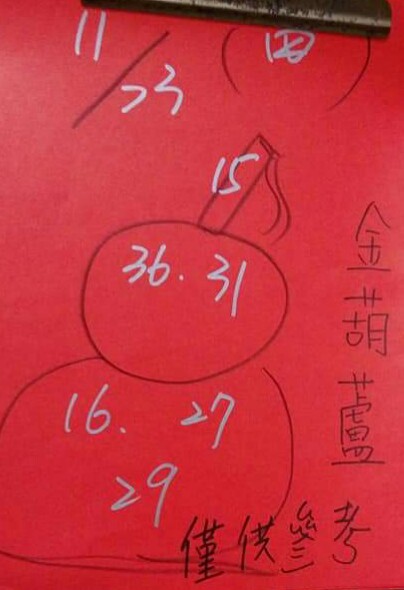 11/23 (四)
15
36. 31
16. 27
29
金葫蘆
僅供參考